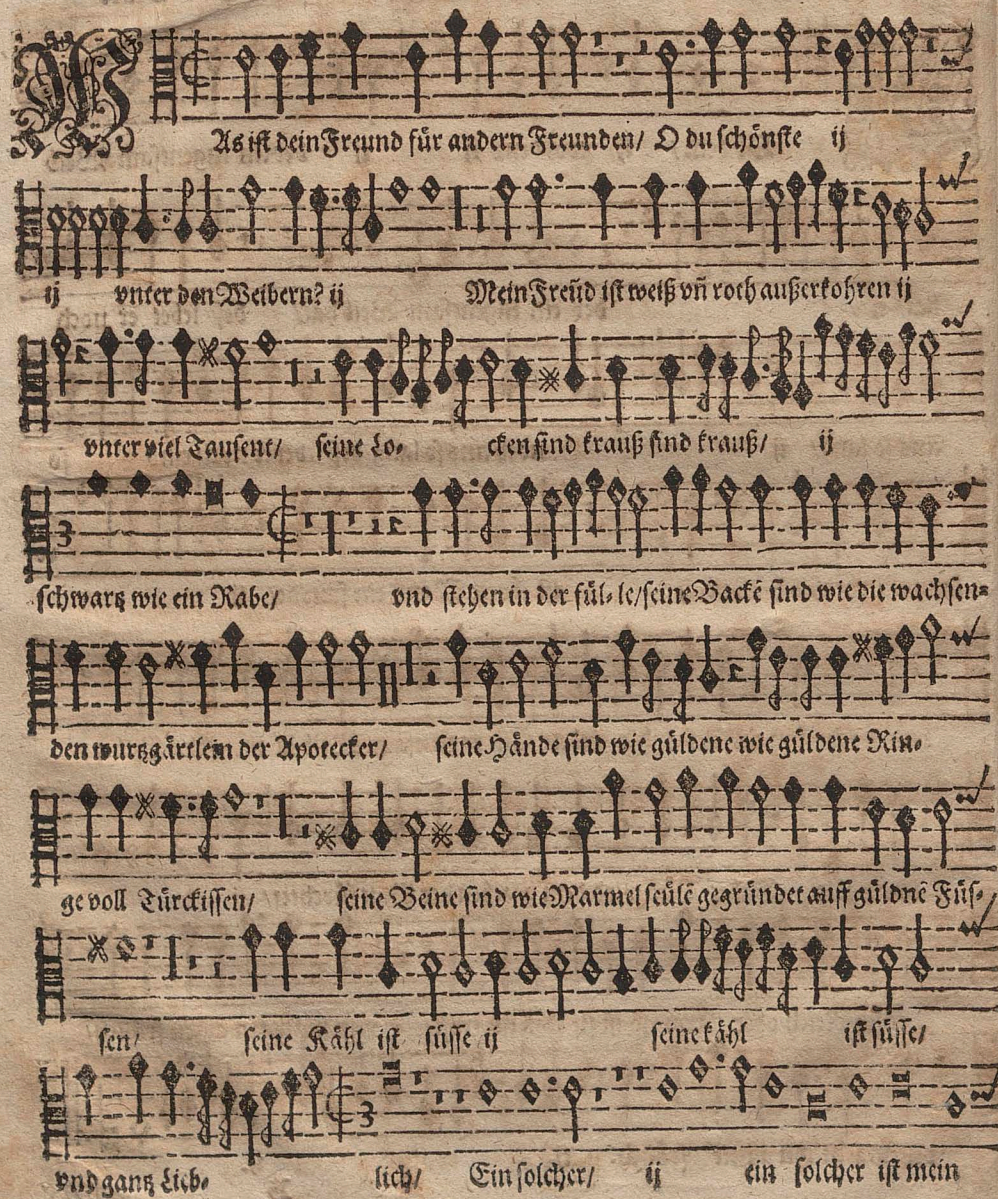 WAs ist dein Freund für andern Freunden/ O du schönste ij
ij vnter den Weibern? ij Mein Freũd ist weiß vñ roth außerkohren ij
vnter viel Tausent/ seine Lo- cken sind krauß sind krauß/ ij
schwartz wie ein Rabe/ vnd stehen in der fül- le/ seine Backẽ sind wie die wachsen-
den wurtzgärtlein der Apotecker/ seine Hände sind wie güldene wie güldene Rin-
ge voll Türckissen/ seine Beine sind wie Marmel seülẽ gegründet auff güldnẽ Füs-
sen/ seine Kähl ist süsse ij seine kähl ist süsse/
vnd gantz Lieb- lich/ Ein solcher/ ij ein solcher ist mein